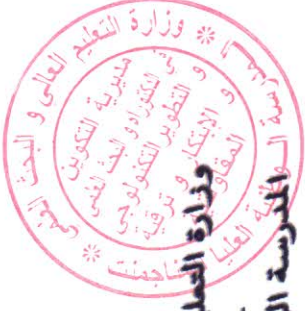 وزارة التعليم العالي و البحث العلمي
المدرسة الوطنية العليا مناجمنت
مديرية التكوين
في الدكتوراه و البحث العلمي
و التطوير التكنولوجي
و الابتكار و ترقية
المقاولا
وزارة التعليـ
المدرسة ا